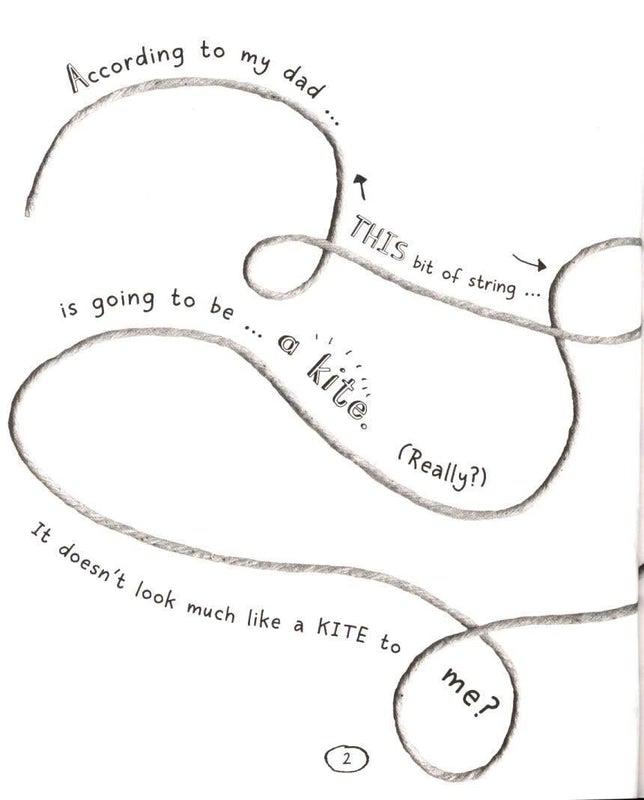 According to my dad ...
THIS bit of string ...
is going to be ... a kite.
(Really?)
It doesn't look much like a KITE to
me?
2